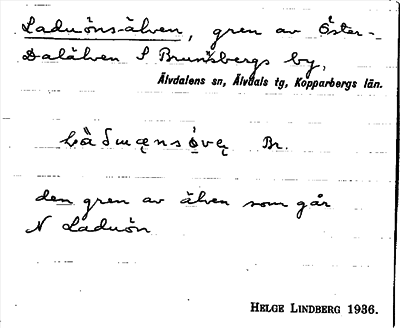 Laduönsälven, gren av Öster-
Dalälven S Brunnsbergs by,
Älvdalens sn, Älvdals tg, Kopparbergs län.
Br.
den gren av älven som går
N Laduön
HELGE LINDBERG 1936.